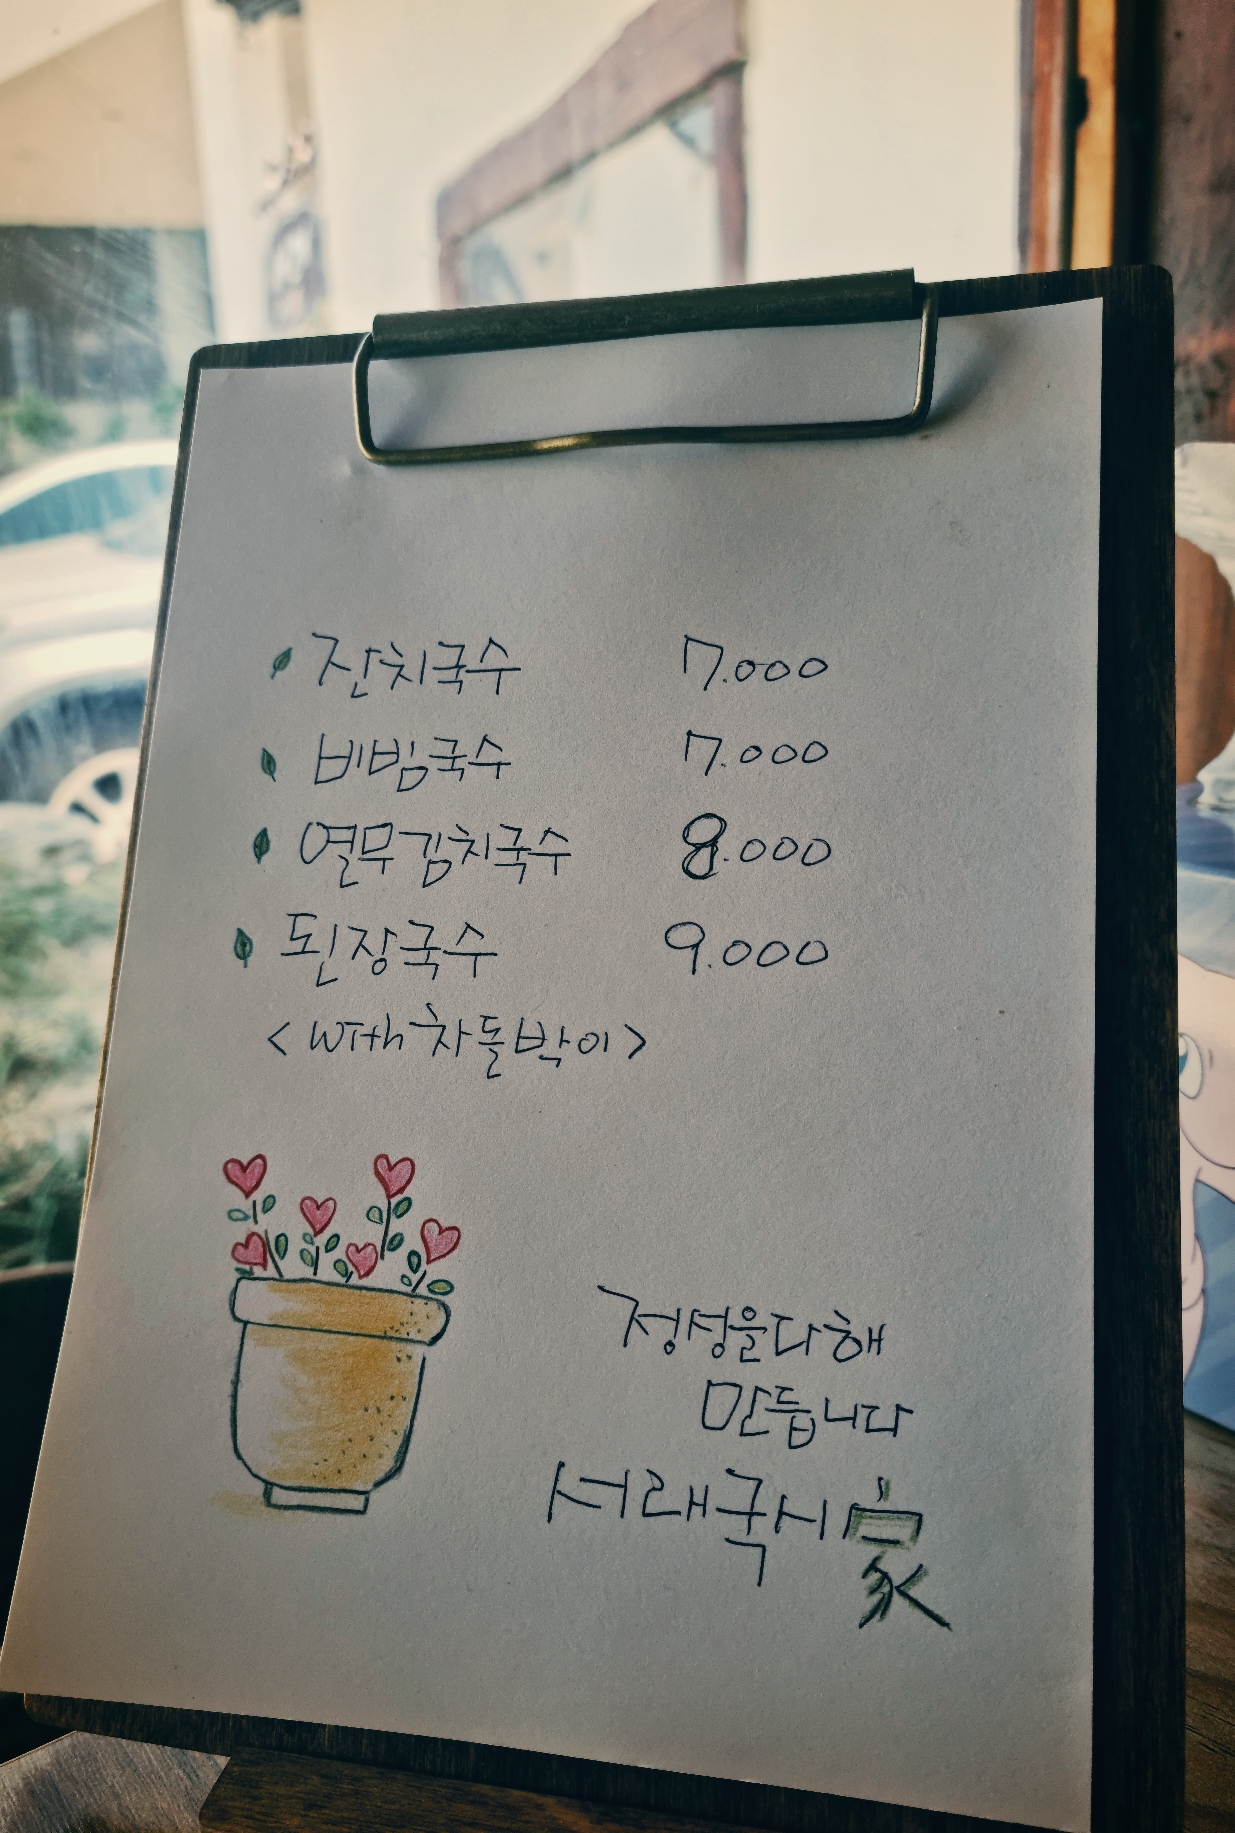 잔치국수 7.000
비빔국수 7.000
열무김치국수 8.000
된장국수 9.000
<with차돌박이>
정성을다해
만듭니다
서래국시家